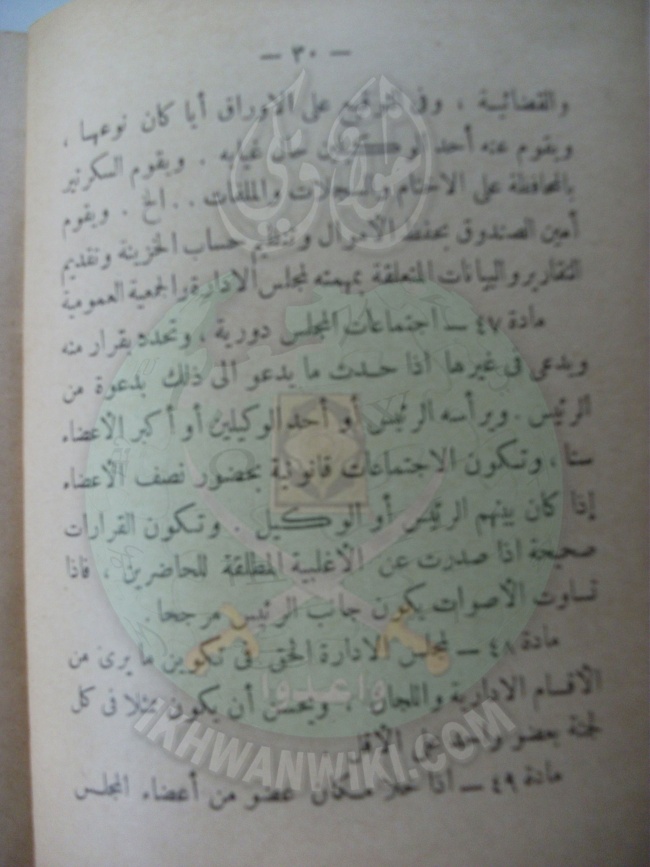 — ٣٠ —
والقضائية ، وفى التوقيع على الأوراق أيا كان نوعها ،
ويقوم عنه أحد الوكيلين حال غيابه . ويقوم السكرتير
بالمحافظة على الاختام والسجلات والملفات . . الخ . ويقوم
أمين الصندوق بحفظ الأموال وتنظيم حساب الخزينة وتقديم
التقارير والبيانات المتعلقة بمهمته لمجلس الادارة والجمعية العمومية
مادة ٤٧ — اجتماعات المجلس دورية ، وتحدد بقرار منه
ويدعى فى غيرها اذا حدث ما يدعو الى ذلك بدعوة من
الرئيس . ويرأسه الرئيس أو أحد الوكيلين أو أكبر الأعضاء
سنا ، وتكون الاجتماعات قانونية بحضور نصف الأعضاء
إذا كان بينهم الرئيس أو الوكيل . وتكون القرارات
صحيحة اذا صدرت عن الأغلبية المطلقة للحاضرين ، فاذا
تساوت الأصوات يكون جانب الرئيس مرجحا .
مادة ٤٨ — لمجلس الادارة الحق فى تكوين ما يرى من
الأقسام الادارية واللجان ، ويحسن أن يكون ممثلا فى كل
لجنة بعضو واحد على الأقل .
مادة ٤٩ — اذا خلا مكان عضو من أعضاء المجلس
وأعدوا
IKHWANWIKI.COM